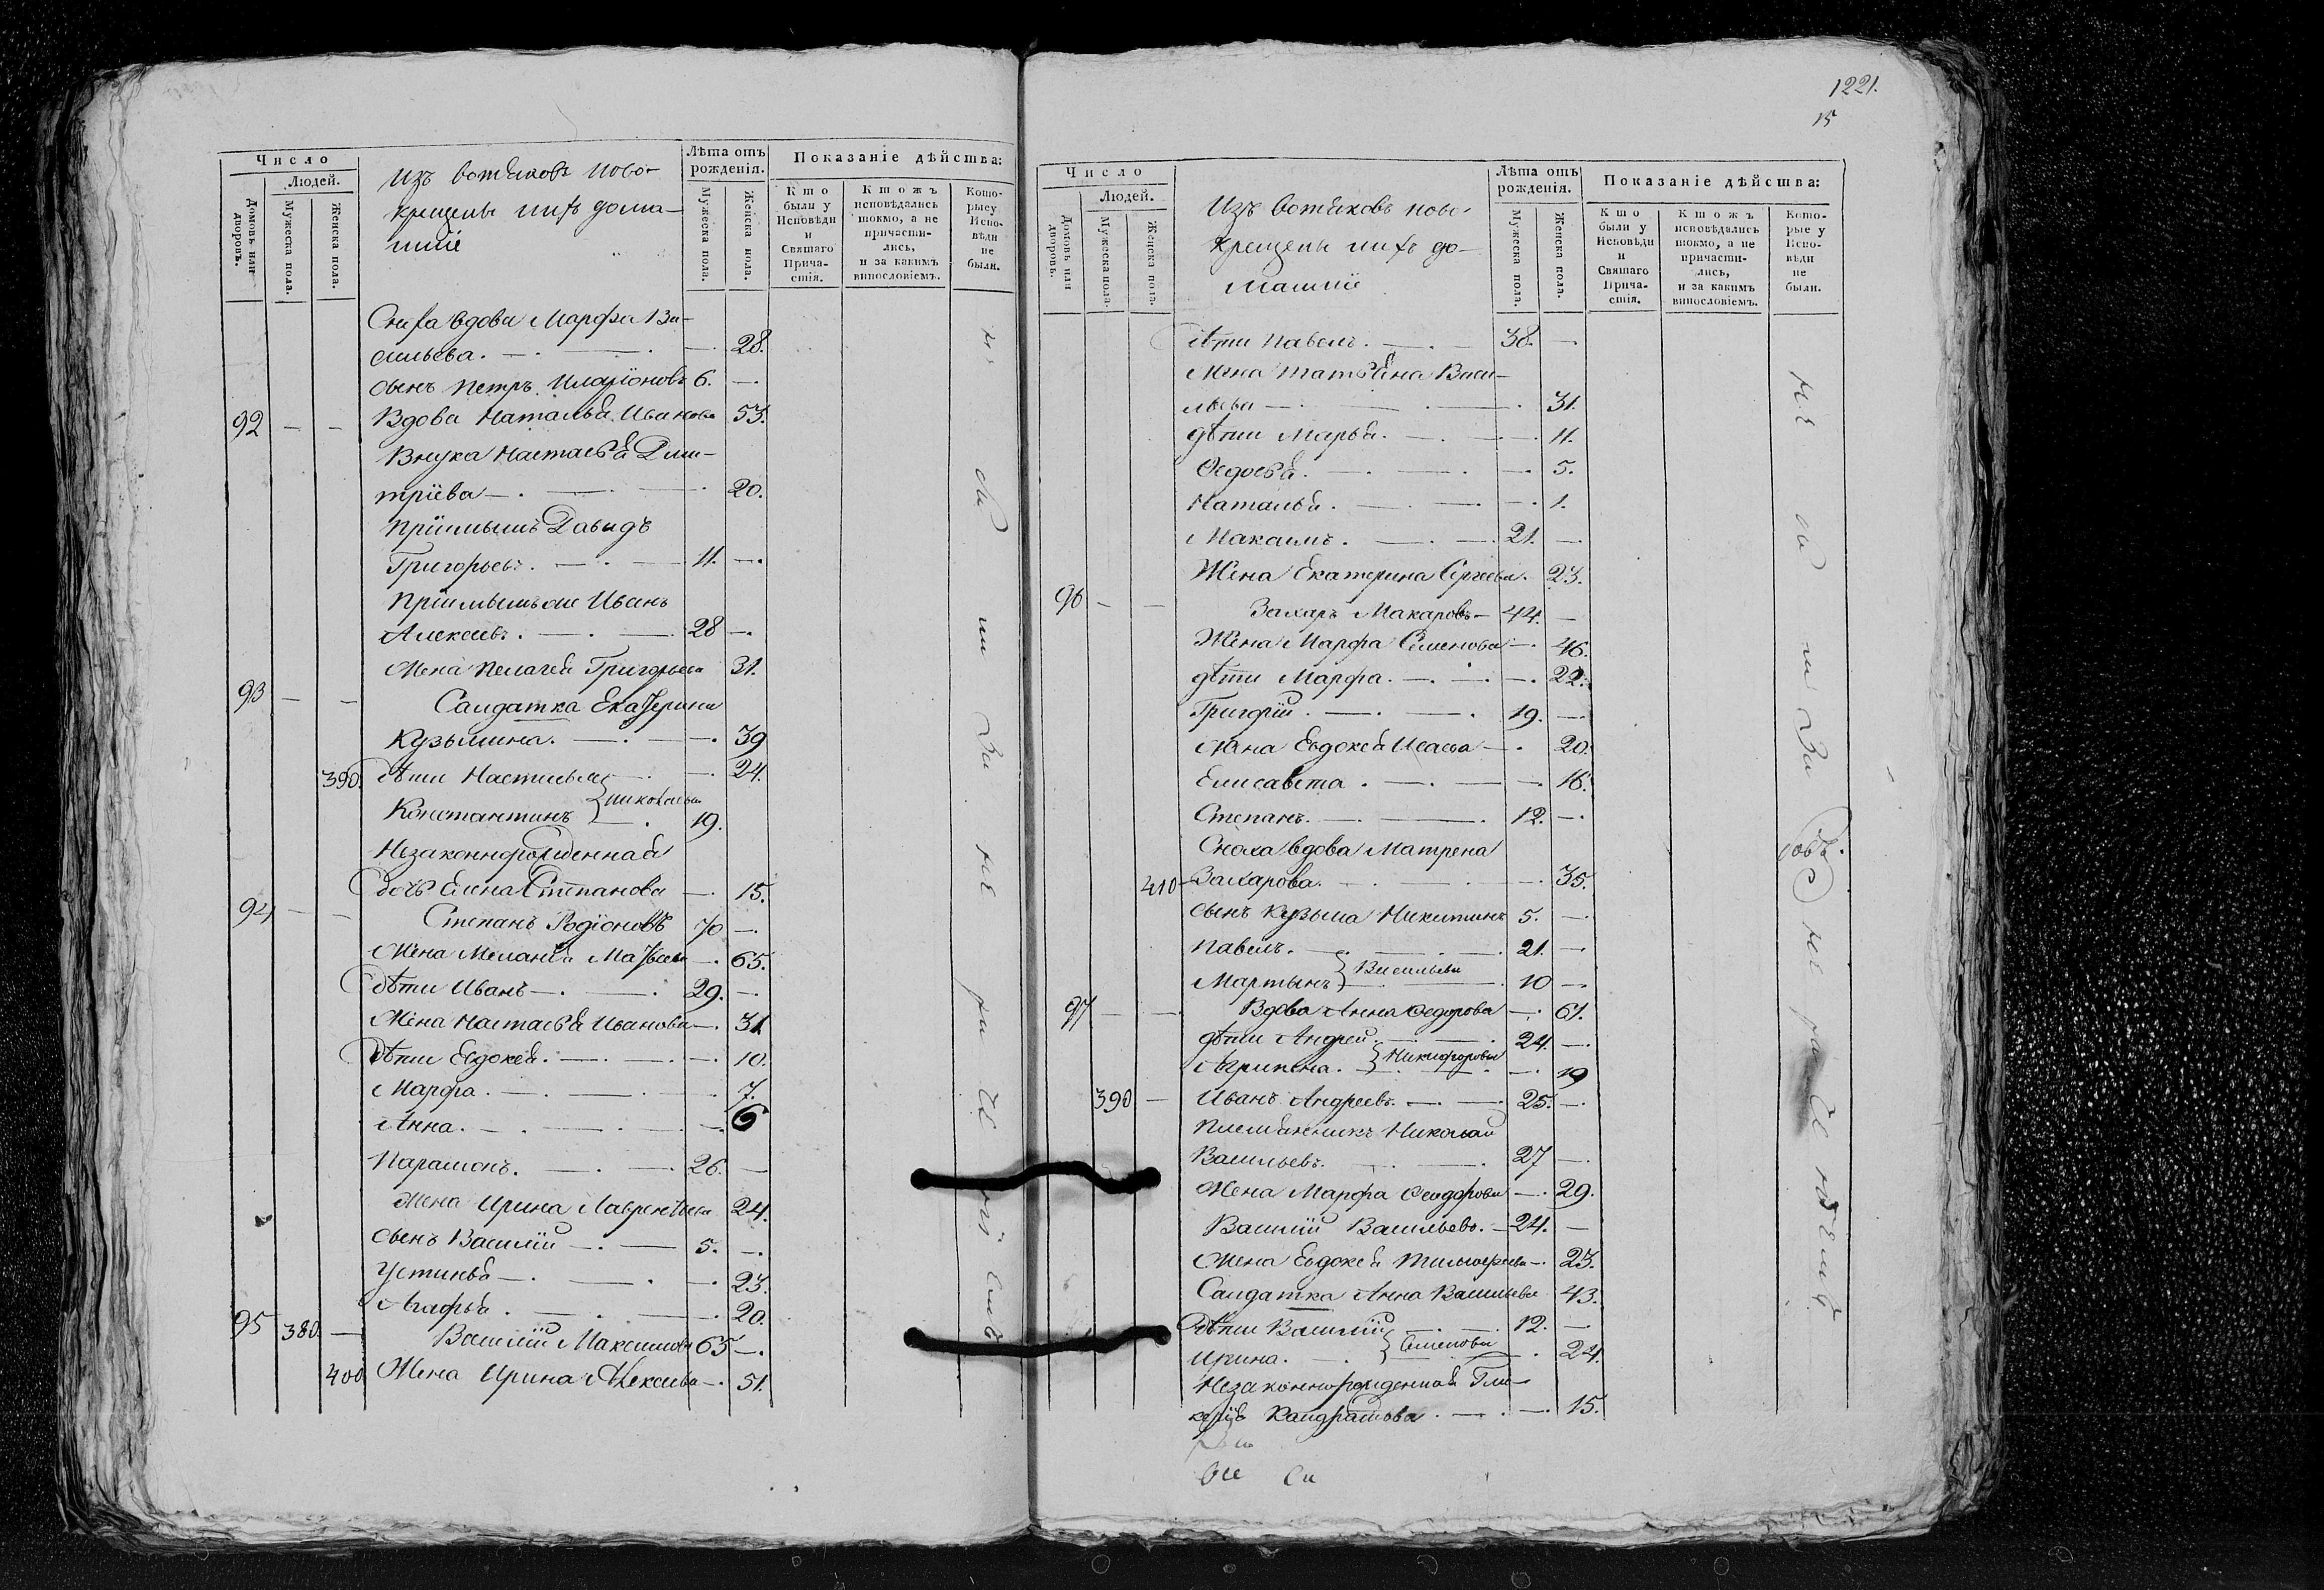 Число
Людей.
Домовъ или дворовъ.
Мужеска пола.
Женска пола.
Изъ вотяковъ ново-
крещены и ихъ дома-
шніе
Лѣта отъ рожденія.
Мужеска пола.
Женска пола.
Показаніе дѣйства:
Кто были у Исповѣди и Святаго Причастія.
Ктожъ исповѣдались токмо, а не причастились, и за какимъ винословіемъ.
Которые у Исповѣди не были.
Сноха вдова Марфа Ва-
сильева. 28.
сынъ Петръ Иларіоновъ 6.
92 Вдова Наталья Иванова 53.
Внука Настасья Дми-
тріева 20.
Пріимышъ Давидъ
Григорьевъ. 11.
Пріимышъ же Иванъ
Алексеевъ. 28
Жена Пелагея Григорьева 31.
93 Салдатка Екатерина
Кузьмина. 39
390. дѣти Настасья 24.
Николаевы
Константинъ 19.
Незаконнорожденная
дочь Елена Степанова 15.
94 Степанъ Родіоновъ 70
Жена Меланья Матвеева 65.
дѣти Иванъ 29.
Жена Настасья Иванова 31.
дѣти Евдокея. 10.
Марфа. 7.
Анна. 6
Парамонъ. 26.
Жена Ирина Лаврентьева 24.
сынъ Василій 5.
Устинья 23.
Агафья. 20.
95 380. Василій Максимовъ 65
400 Жена Ирина Алексеева 51.
1221.
15
Число
Людей.
Домовъ или дворовъ.
Мужеска пола.
Женска пола.
Изъ вотяковъ ново-
крещены и ихъ до-
машніе
Лѣта отъ рожденія.
Мужеска пола.
Женска пола.
Показаніе дѣйства:
Кто были у Исповѣди и Святаго Причастія.
Ктожъ исповѣдались токмо, а не причастились, и за какимъ винословіемъ.
Которые у Исповѣди не были.
дѣти Павелъ. 38.
Жена Татьяна Васи-
льева 31.
дѣти Марья. 11.
Ѳедосья. 5.
Наталья. 1.
Максимъ. 21.
Жена Екатерина Сергеева. 23.
96 Захаръ Макаровъ 44.
Жена Марфа Семенова 46.
дѣти Марфа. 22.
Григорій. 19.
жена Евдокея Исаева 20.
Елисавета. 16.
Степанъ. 12.
Сноха вдова Матрена
410 Захарова. 35.
сынъ Кузьма Никитинъ 5.
Павелъ. 21.
Васильевы
Мартынъ 10
97 Вдова Анна Ѳедорова 61.
дѣти Андрей 24.
Никифоровы
Агрипена. 19
390 Иванъ Андреевъ. 25.
Племянникъ Николай
Васильевъ. 27
Жена Марфа Ѳеодорова 29.
Василій Васильевъ. 24.
Жена Евдокея Тимофеева 23.
Салдатка Анна Васильева 43.
дѣти Василій 12.
Семеновы
Ирина. 24.
Незаконнорожденная Гли-
керія Кандратова. 15.